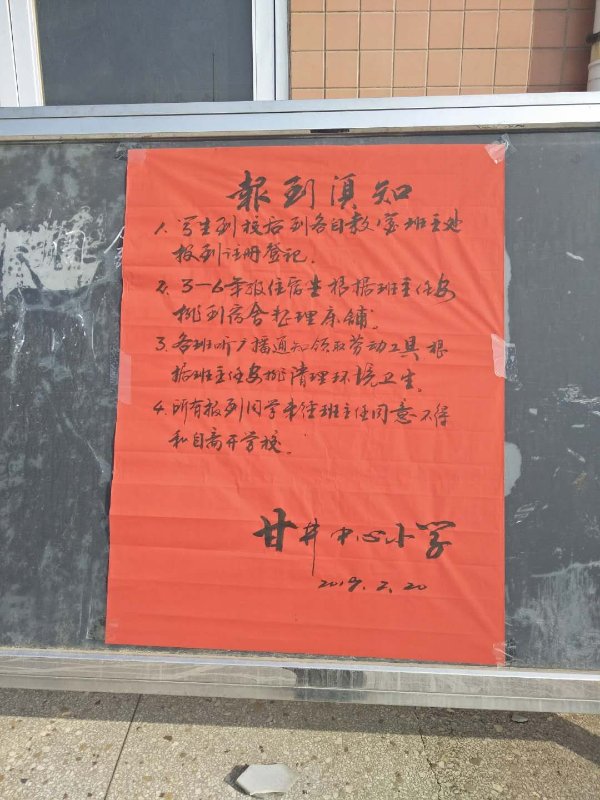 報到须知
1. 学生到校后到各自教室班主处
报到注册登记.
2. 3-6年级住宿生根据班主任安
排到宿舍整理床铺.
3. 各班听广播通知领取劳动工具根
据班主任安排清理环境卫生.
4. 所有报到同学未经班主任同意不得
私自离开学校.
甘井中心小学
2019.2.20